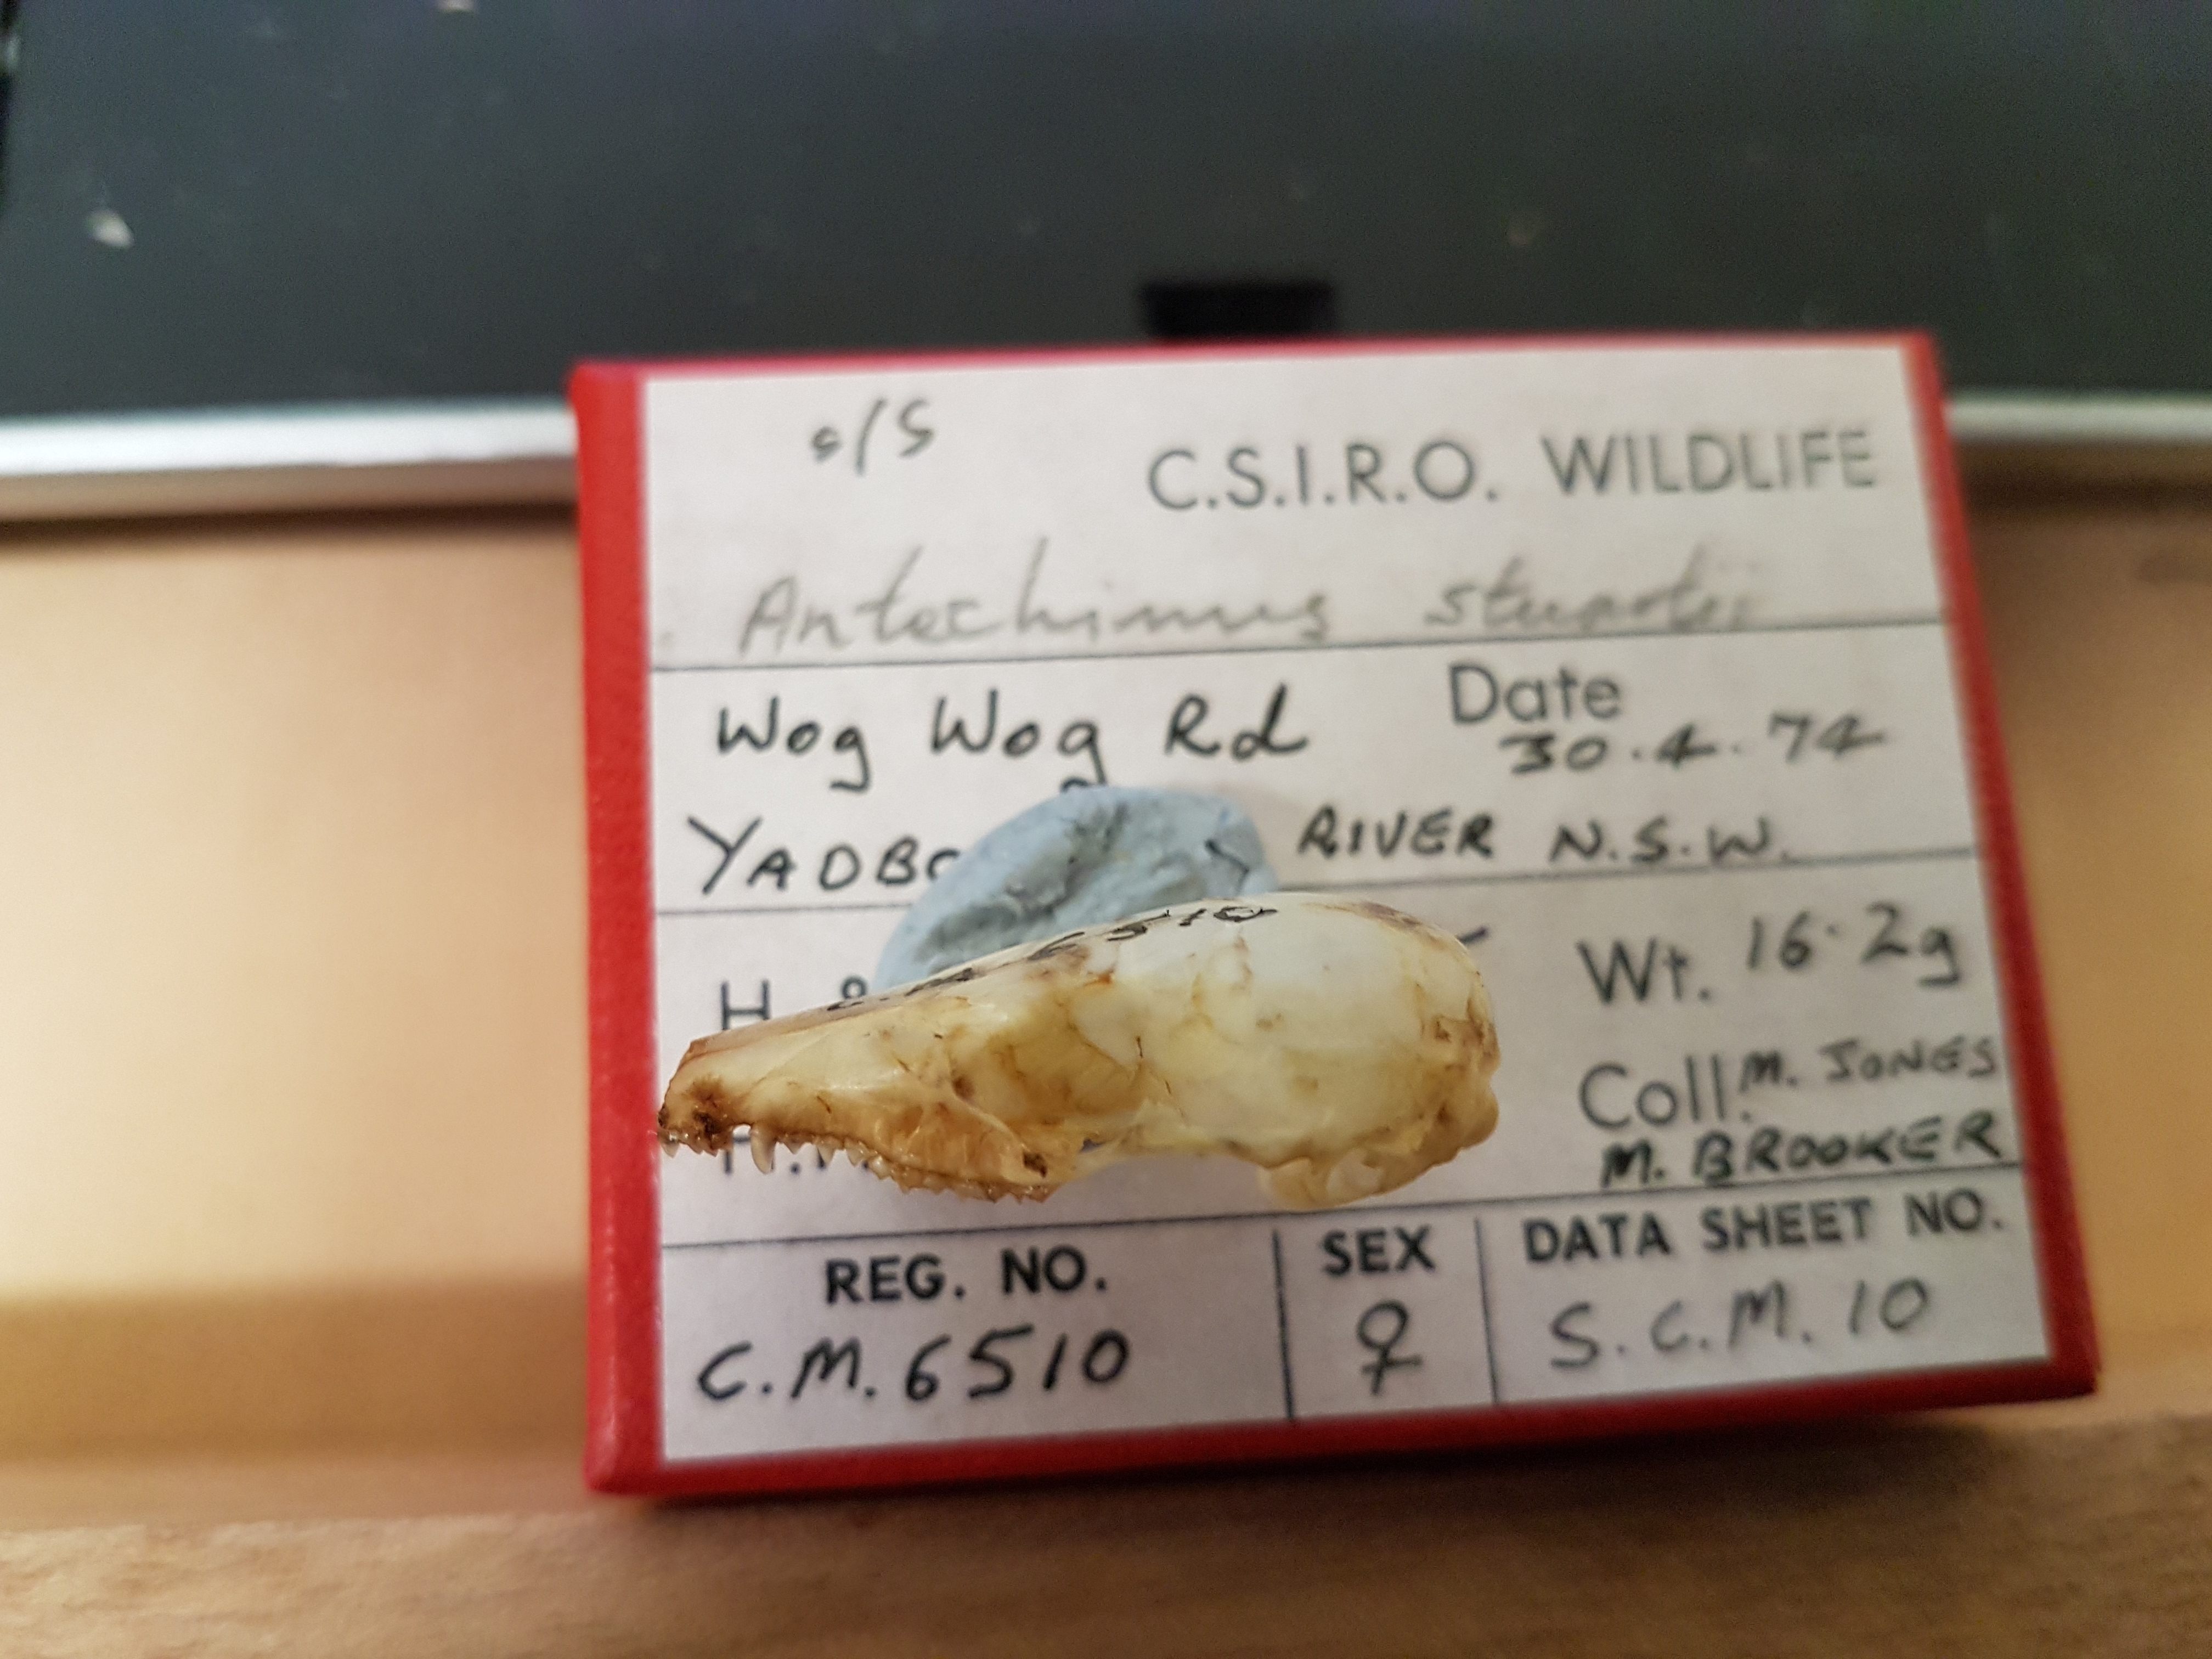 s/s
C.S.I.R.O. WILDLIFE
Antechinus stuartii
Wog Wog Rd Date
30.4.74
RIVER N.S.W.
H Wt. 16.2g
Coll M. JONES
M. BROOKER
REG. NO. SEX DATA SHEET NO.
C.M. 6510 ♀ S.C.M. 10